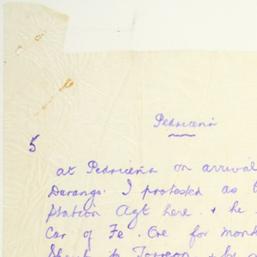 Pedriceña
5
at Pedriceña on arrival
Durango. I protested as
Station Agt here. & he
Car of Fe. Ore for
to Torreon & he